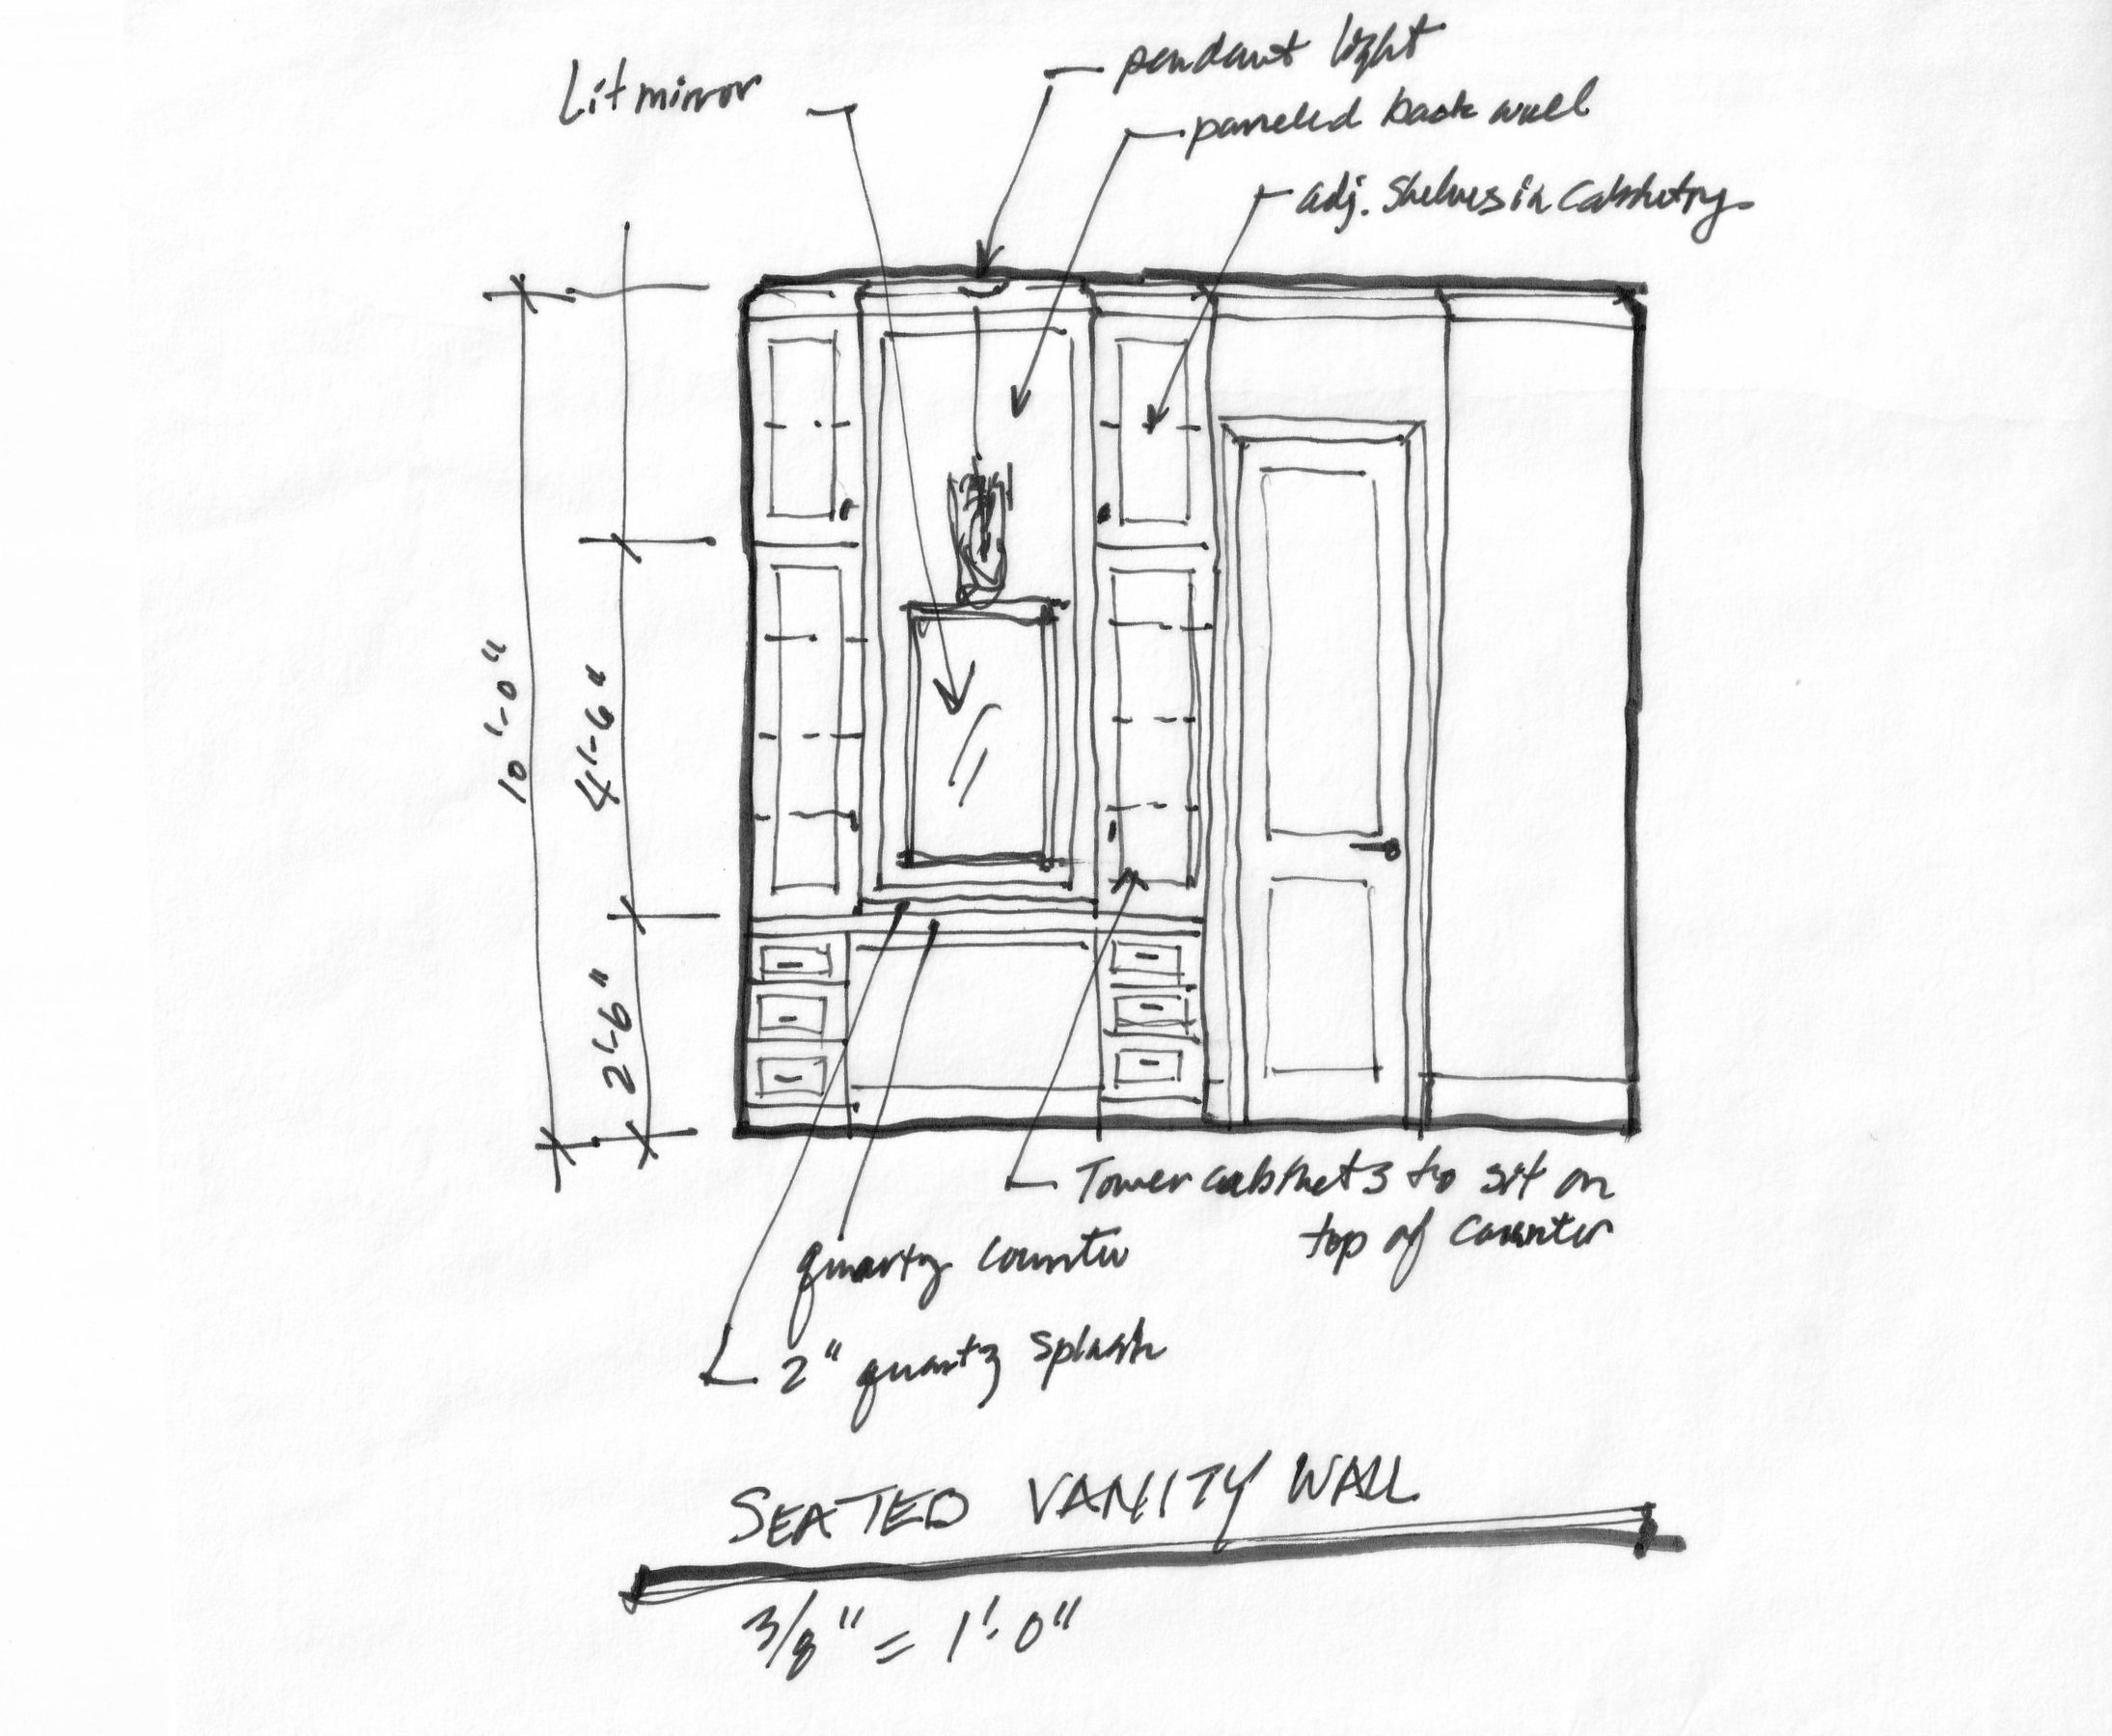 Lit mirror
pendant light
paneled back wall
adj. Shelves in Cabinetry
10'-0"
4'-6"
2'-6"
Tower cabinets to sit on
top of counter
quartz counter
2" quartz splash
SEATED VANITY WALL
3/8" = 1'-0"